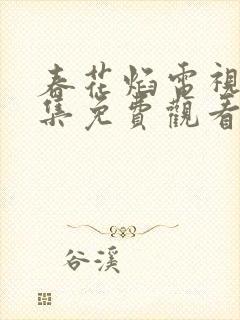 春花焰電視
集免費觀看
谷溪